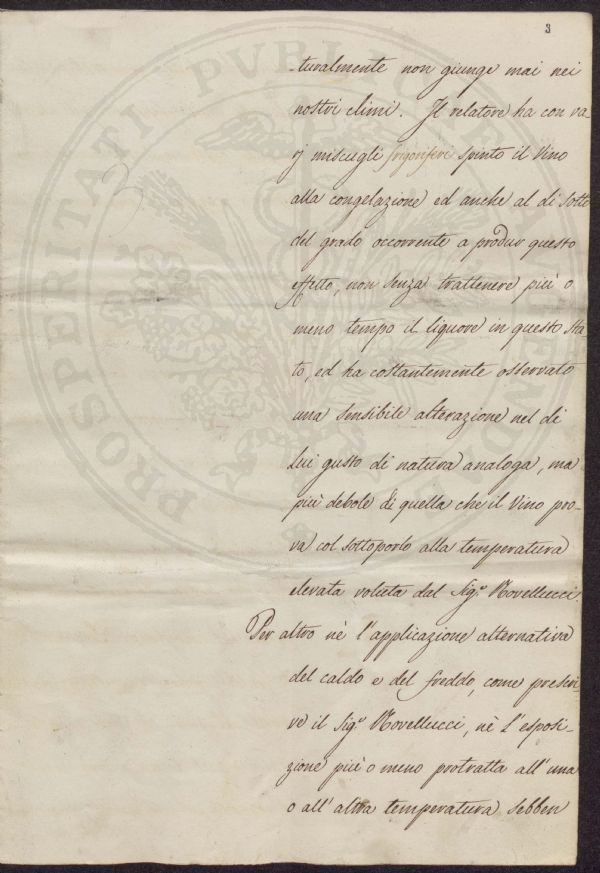 3
turalmente non giunge mai nei
nostri climi. Il relatore ha con va-
rj miscugli frigoriferi spinto il Vino
alla congelazione ed anche al di sotto
del grado occorrente a produr questo
effetto, non senza trattenere più o
meno tempo il liquore in questo sta
to, ed ha costantemente osservato
una sensibile alterazione nel di
lui gusto di natura analoga, ma
più debole di quella che il Vino pro-
va col sottoporlo alla temperatura
elevata voluta dal Sig.r Novellucci.
Per altro nè l'applicazione alternativa
del caldo e del freddo, come prescri-
ve il Sig.r Novellucci, nè l'esposi-
zione più o meno protratta all'una
o all'altra temperatura sebben
PROSPERITATI PVBLICAE